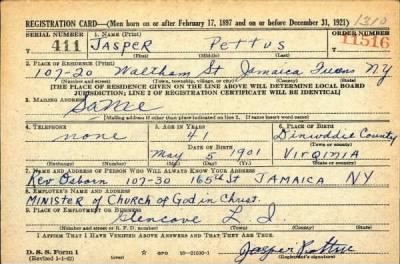 REGISTRATION CARD—(Men born on or after February 17, 1897 and on or before December 31, 1921) 1310
SERIAL NUMBER 1. NAME (Print) ORDER NUMBER
T 411 JASPER PETTUS 11516
(First) (Middle) (Last)
2. PLACE OF RESIDENCE (Print)
107-20 Waltham St Jamaica Queens NY
(Number and street) (Town, township, village, or city) (County) (State)
[THE PLACE OF RESIDENCE GIVEN ON THE LINE ABOVE WILL DETERMINE LOCAL BOARD
JURISDICTION; LINE 2 OF REGISTRATION CERTIFICATE WILL BE IDENTICAL]
3. MAILING ADDRESS
Same
[Mailing address if other than place indicated on line 2. If same insert word same]
4. TELEPHONE 5. AGE IN YEARS 6. PLACE OF BIRTH
none 41 Dinwiddie County
DATE OF BIRTH (Town or county)
May 5 1901 VIRGINIA
(Exchange) (Number) (Mo.) (Day) (Yr.) (State or country)
7. NAME AND ADDRESS OF PERSON WHO WILL ALWAYS KNOW YOUR ADDRESS
Rev Osborn 107-30 165th St JAMAICA NY
8. EMPLOYER'S NAME AND ADDRESS
Minister of Church of God in Christ.
9. PLACE OF EMPLOYMENT OR BUSINESS
Glencove L I
(Number and street or R. F. D. number) (Town) (County) (State)
I AFFIRM THAT I HAVE VERIFIED ABOVE ANSWERS AND THAT THEY ARE TRUE.
D. S. S. Form 1 GPO 16-21630-1 Jasper Pettus
(Revised 4-1-42) (over) (Registrant's signature)